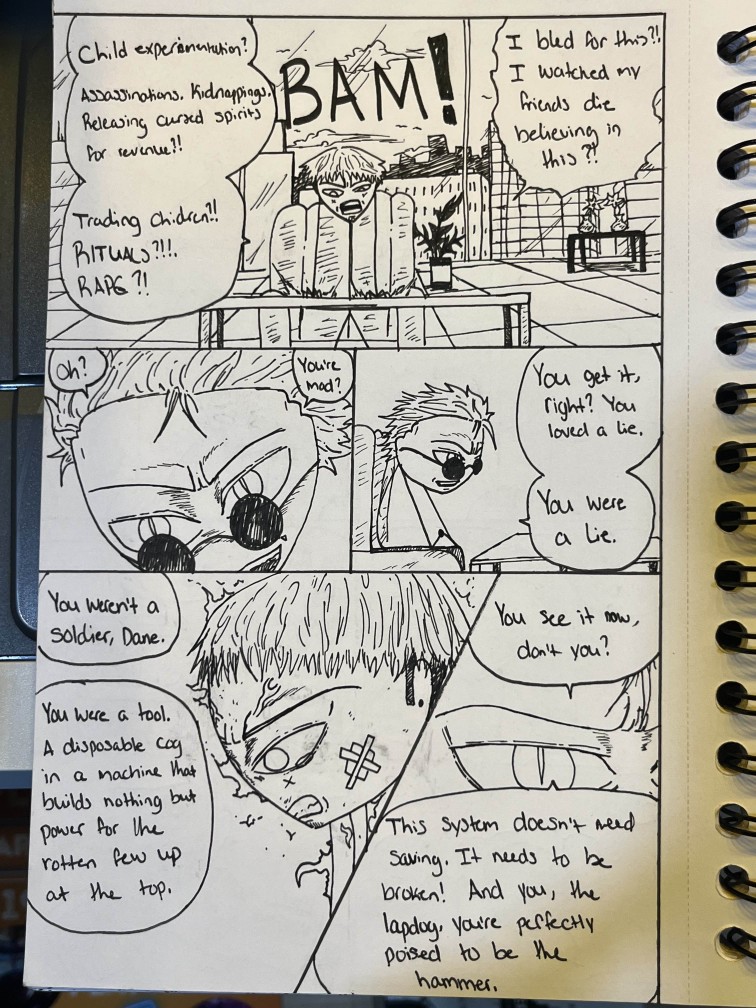 Child experimentation?
Assassinations. Kidnappings.
Releasing cursed spirits
for revenue?!
Trading children?!
RITUALS?!!.
RAPE?!
BAM!
I bled for this?!
I watched my
friends die
believing in
this?!
Oh?
You're
mad?
You get it,
right? You
loved a lie.
You were
a lie.
You weren't a
soldier, Dane.
You were a tool.
A disposable cog
in a machine that
builds nothing but
power for the
rotten few up
at the top.
You see it now,
don't you?
This system doesn't need
saving. It needs to be
broken! And you, the
lapdog, you're perfectly
poised to be the
hammer.